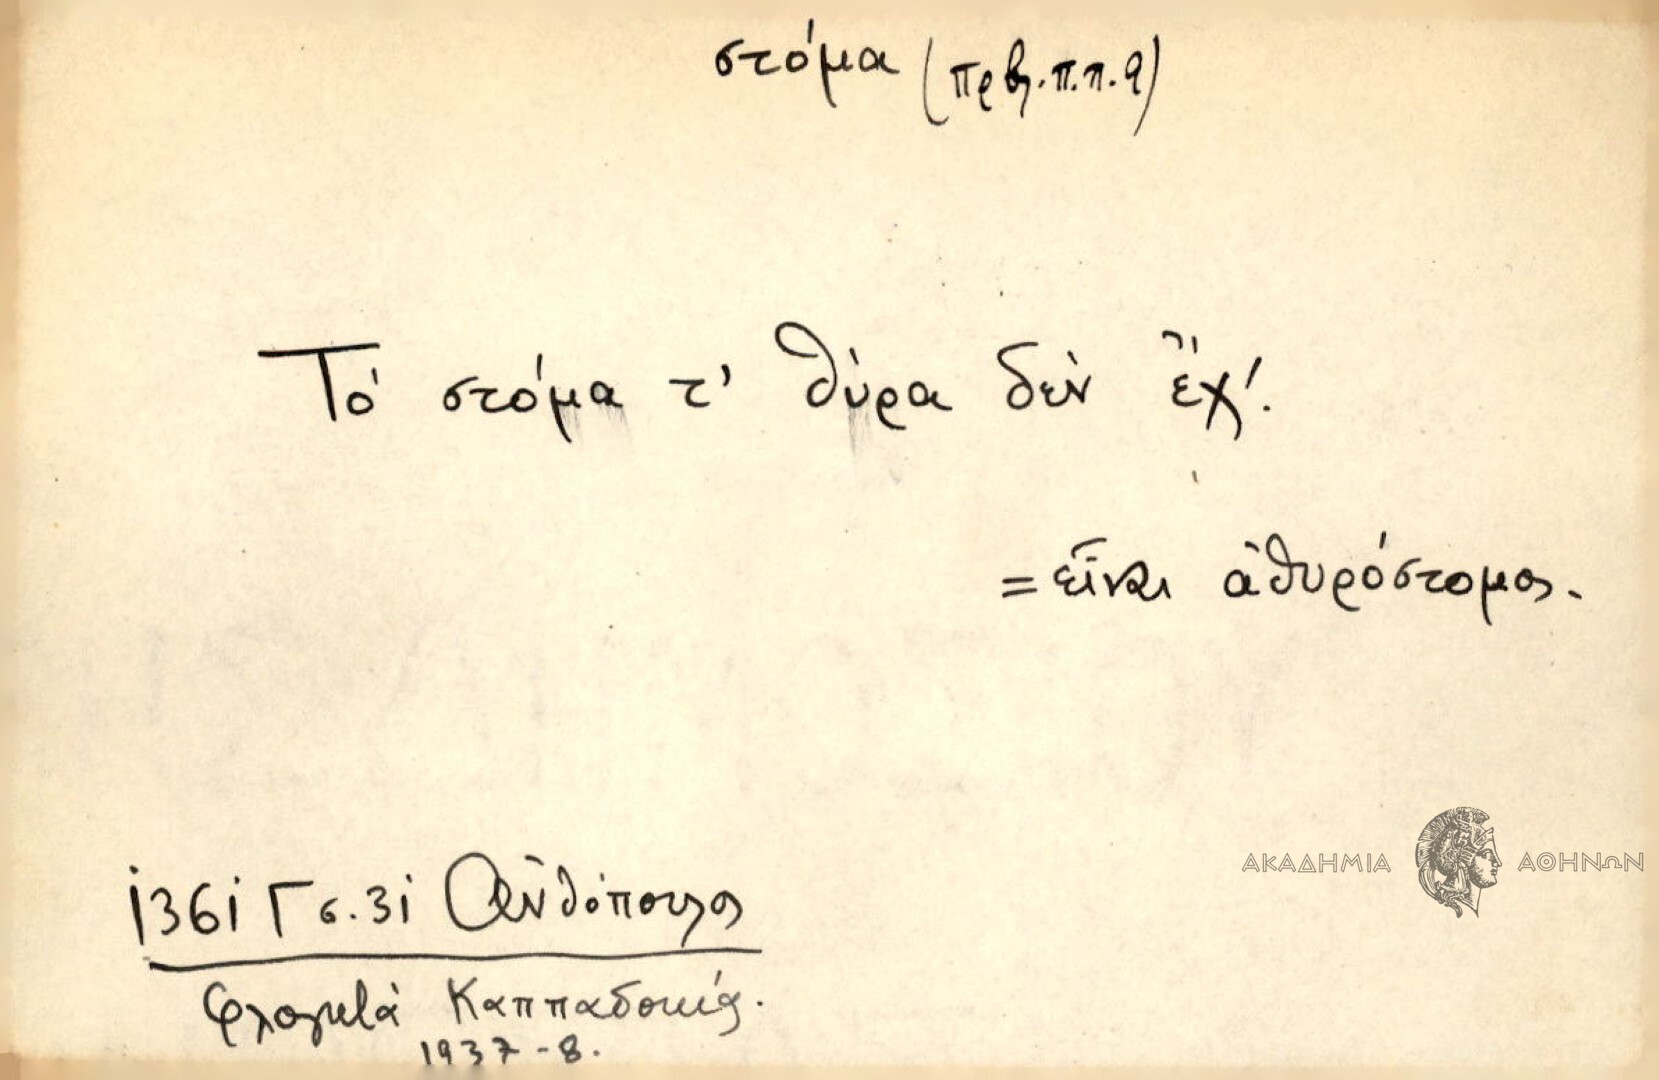 στόμα (πρβλ. π.π. 9)
Τό στόμα τ' θύρα δὲν ἔχ'.
= εἶναι ἀθυρόστομος.
ΑΚΑΔΗΜΙΑ ΑΘΗΝΩΝ
1361 Γ σ. 31
Φλογητά Καππαδοκίας.
1937-8.